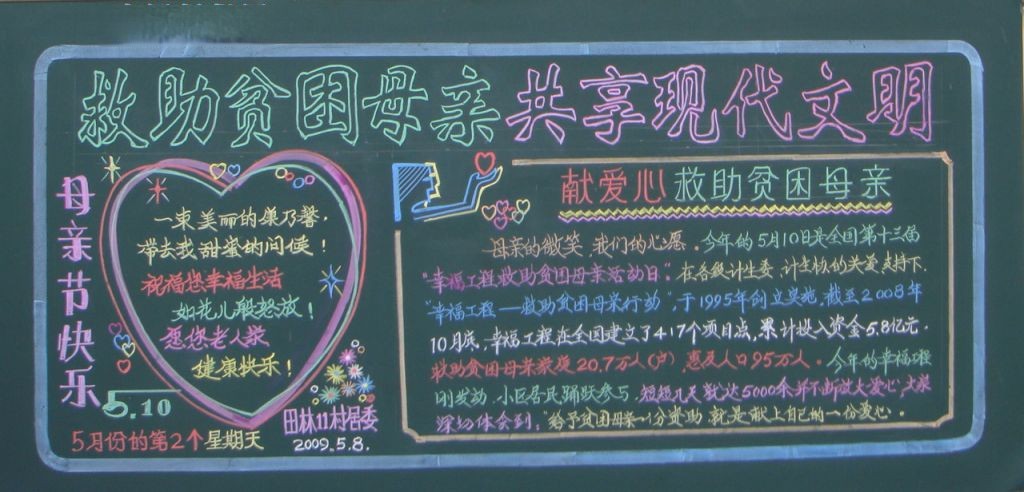 救助贫困母亲 共享现代文明
母亲节快乐
一束美丽的康乃馨，
带去我甜蜜的问候！
祝福您幸福生活
如花儿般怒放！
愿您老人家
健康快乐！
5.10
5月份的第2个星期天
田林11村居委
2009.5.8.
献爱心救助贫困母亲
母亲的微笑 我们的心愿。今年的5月10日是全国第十三届
"幸福工程救助贫困母亲活动日"。在各级计生委、计生协的关爱支持下，
"幸福工程——救助贫困母亲行动"，于1995年创立实施，截至2008年
10月底，幸福工程在全国建立了417个项目点，累计投入资金5.8亿元，
救助贫困母亲家庭20.7万人(户)，惠及人口95万人。今年的幸福工程
刚发动，小区居民踊跃参与，短短几天就达5000余
深切体会到："给予贫困母亲一份资助，就是献上自己的一份爱心。